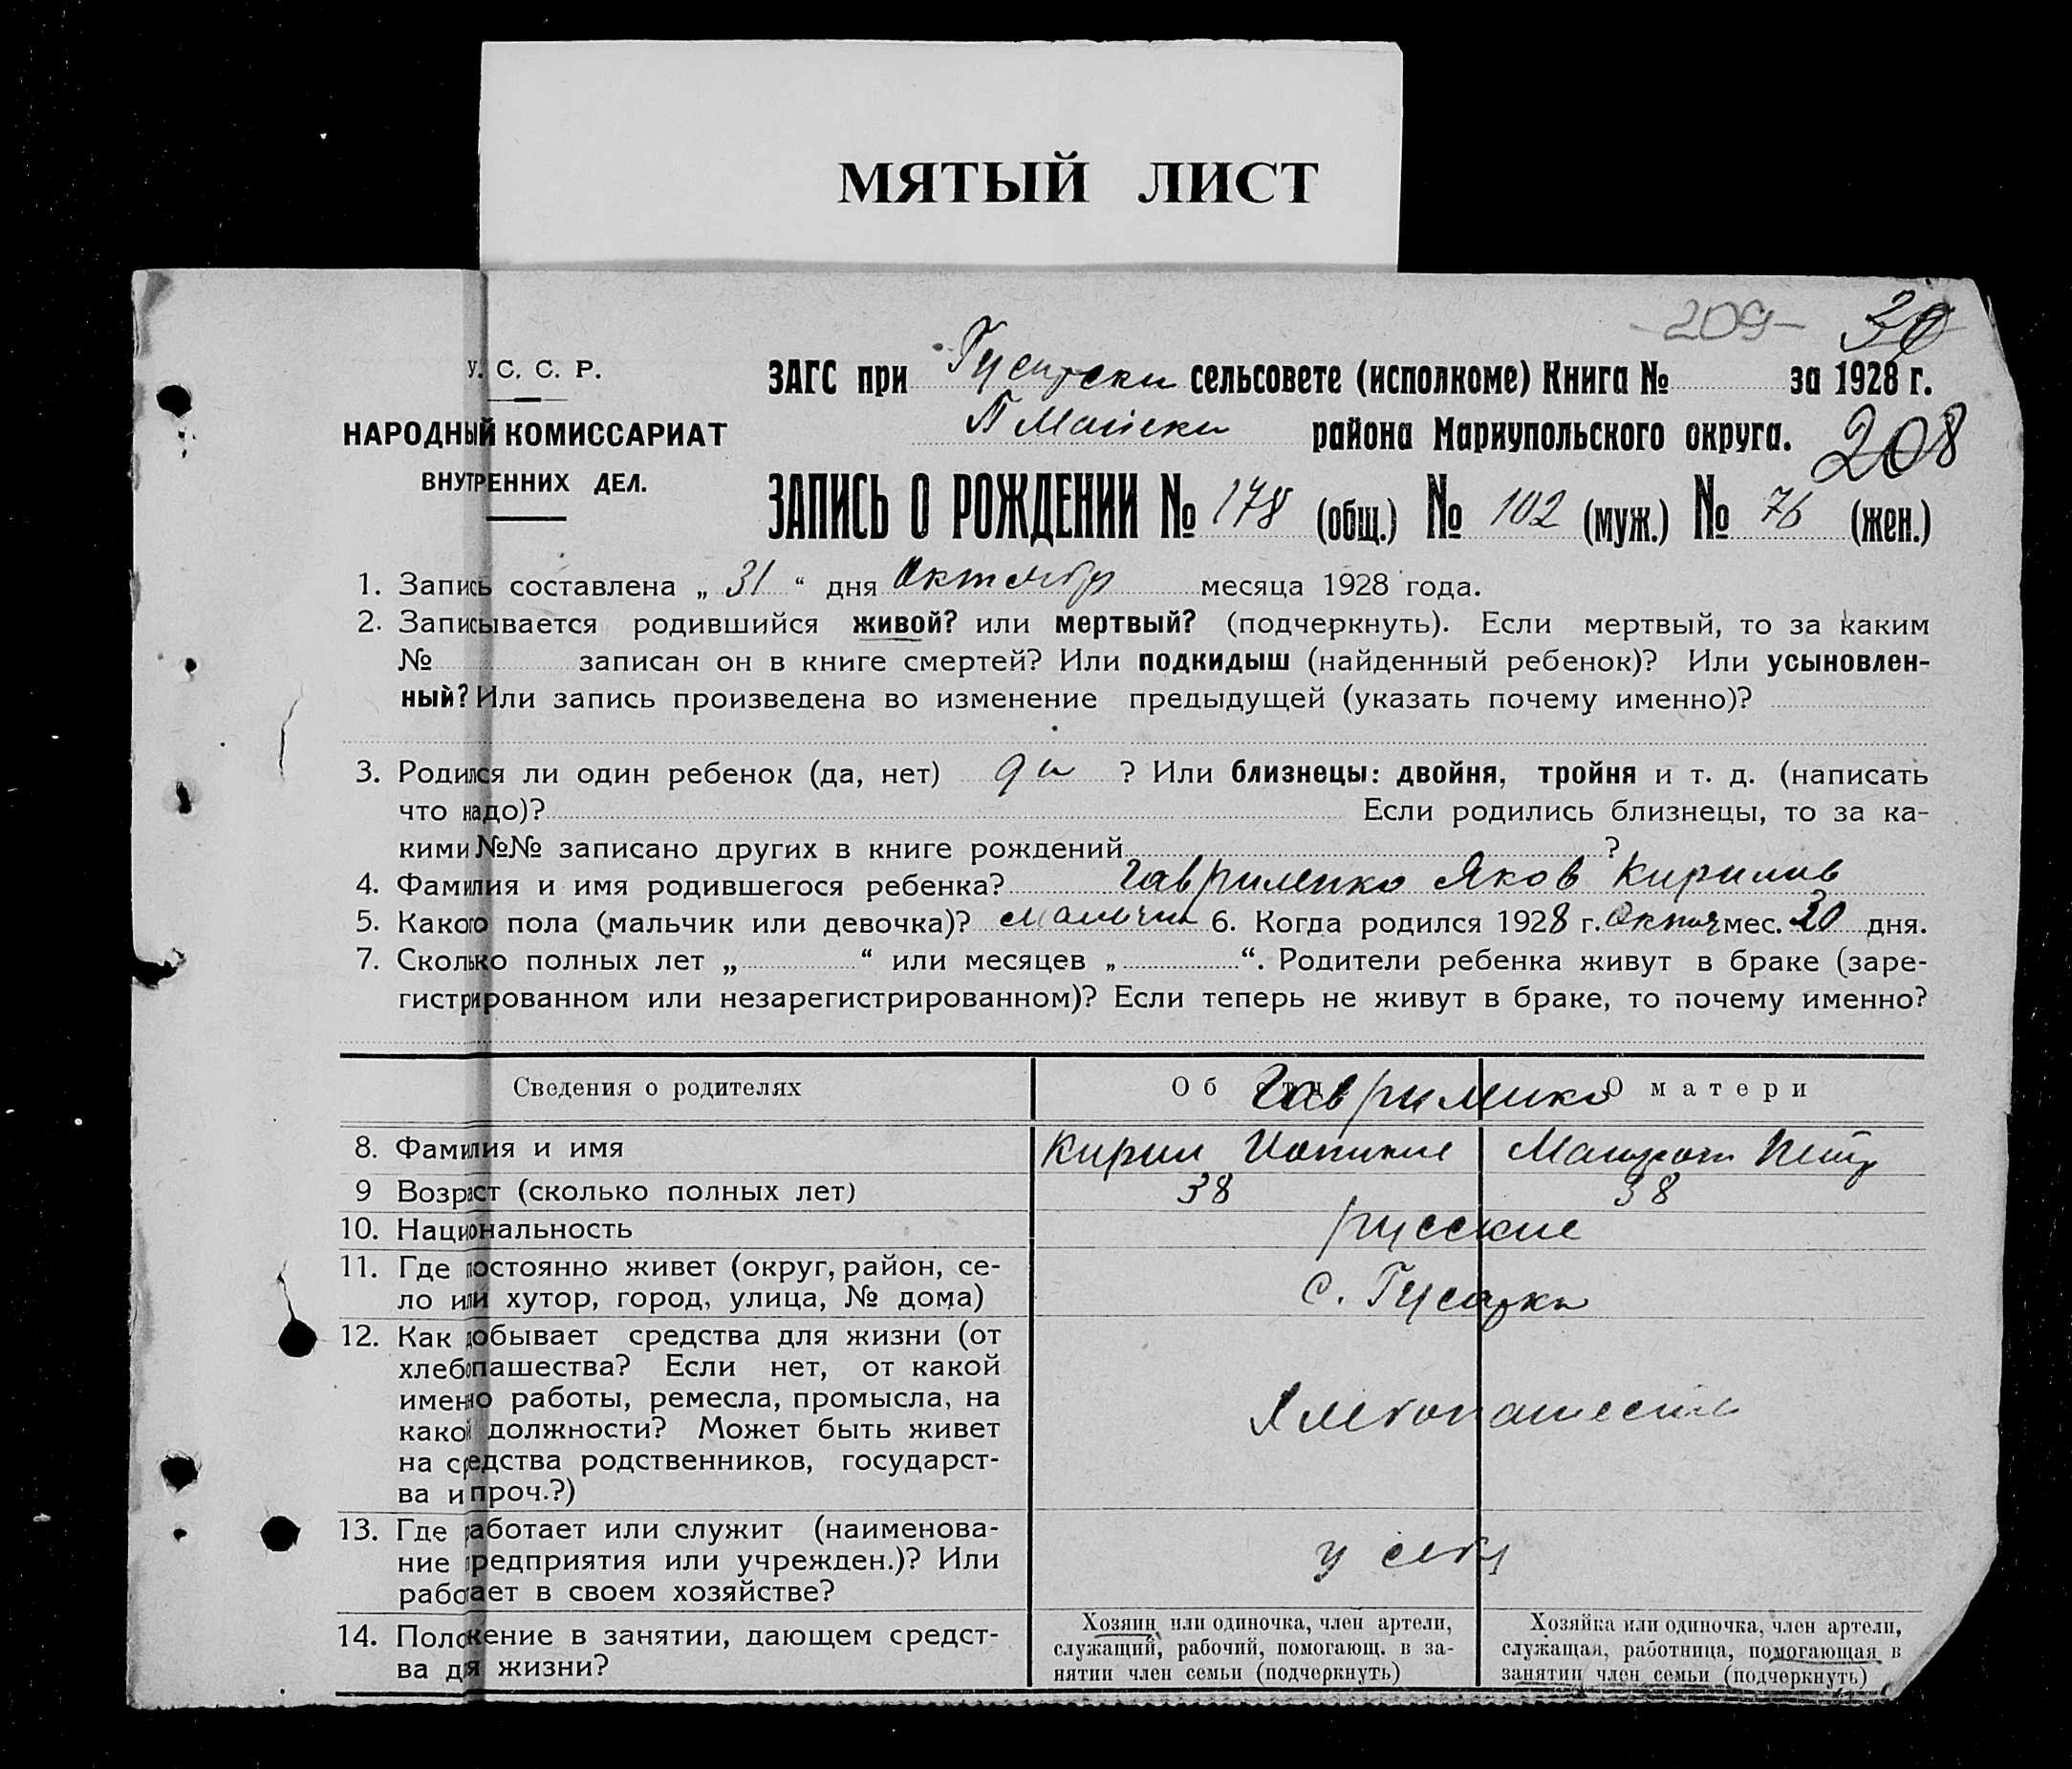 МЯТЫЙ ЛИСТ
209 30
У. С. С. Р.
ЗАГС при сельсовете (исполкоме) Книга № за 1928 г.
НАРОДНЫЙ КОМИССАРИАТ
района Мариупольского округа.
208
ВНУТРЕННИХ ДЕЛ.
ЗАПИСЬ О РОЖДЕНИИ № 178 (общ.) № 102 (муж.) № 76 (жен.)
1. Запись составлена „ 31 “ дня Октябр месяца 1928 года.
2. Записывается родившийся живой? или мертвый? (подчеркнуть). Если мертвый, то за каким
№ записан он в книге смертей? Или подкидыш (найденный ребенок)? Или усыновлен-
ный? Или запись произведена во изменение предыдущей (указать почему именно)?
3. Родился ли один ребенок (да, нет) да ? Или близнецы: двойня, тройня и т. д. (написать
что надо)? Если родились близнецы, то за ка-
кими №№ записано других в книге рождений ?
4. Фамилия и имя родившегося ребенка? Гавриленко Яков Кирилов
5. Какого пола (мальчик или девочка)? мальчик 6. Когда родился 1928 г. Октяб мес. 30 дня.
7. Сколько полных лет „ “ или месяцев „ “. Родители ребенка живут в браке (заре-
гистрированном или незарегистрированном)? Если теперь не живут в браке, то почему именно?
Сведения о родителях
Об Гавриленко О матери
8. Фамилия и имя
Кирил
9 Возраст (сколько полных лет)
38
38
10. Национальность
русские
11. Где постоянно живет (округ, район, се-
ло или хутор, город, улица, № дома)
с. Гусарки
12. Как добывает средства для жизни (от
хлебопашества? Если нет, от какой
именно работы, ремесла, промысла, на
какой должности? Может быть живет
на средства родственников, государст-
ва и проч.?)
Хлебопашество
13. Где работает или служит (наименова-
ние предприятия или учрежден.)? Или
работает в своем хозяйстве?
у себя
14. Положение в занятии, дающем средст-
ва для жизни?
Хозяин или одиночка, член артели,
служащий, рабочий, помогающ. в за-
нятии член семьи (подчеркнуть)
Хозяйка или одиночка, член артели,
служащая, работница, помогающая в
занятии член семьи (подчеркнуть)